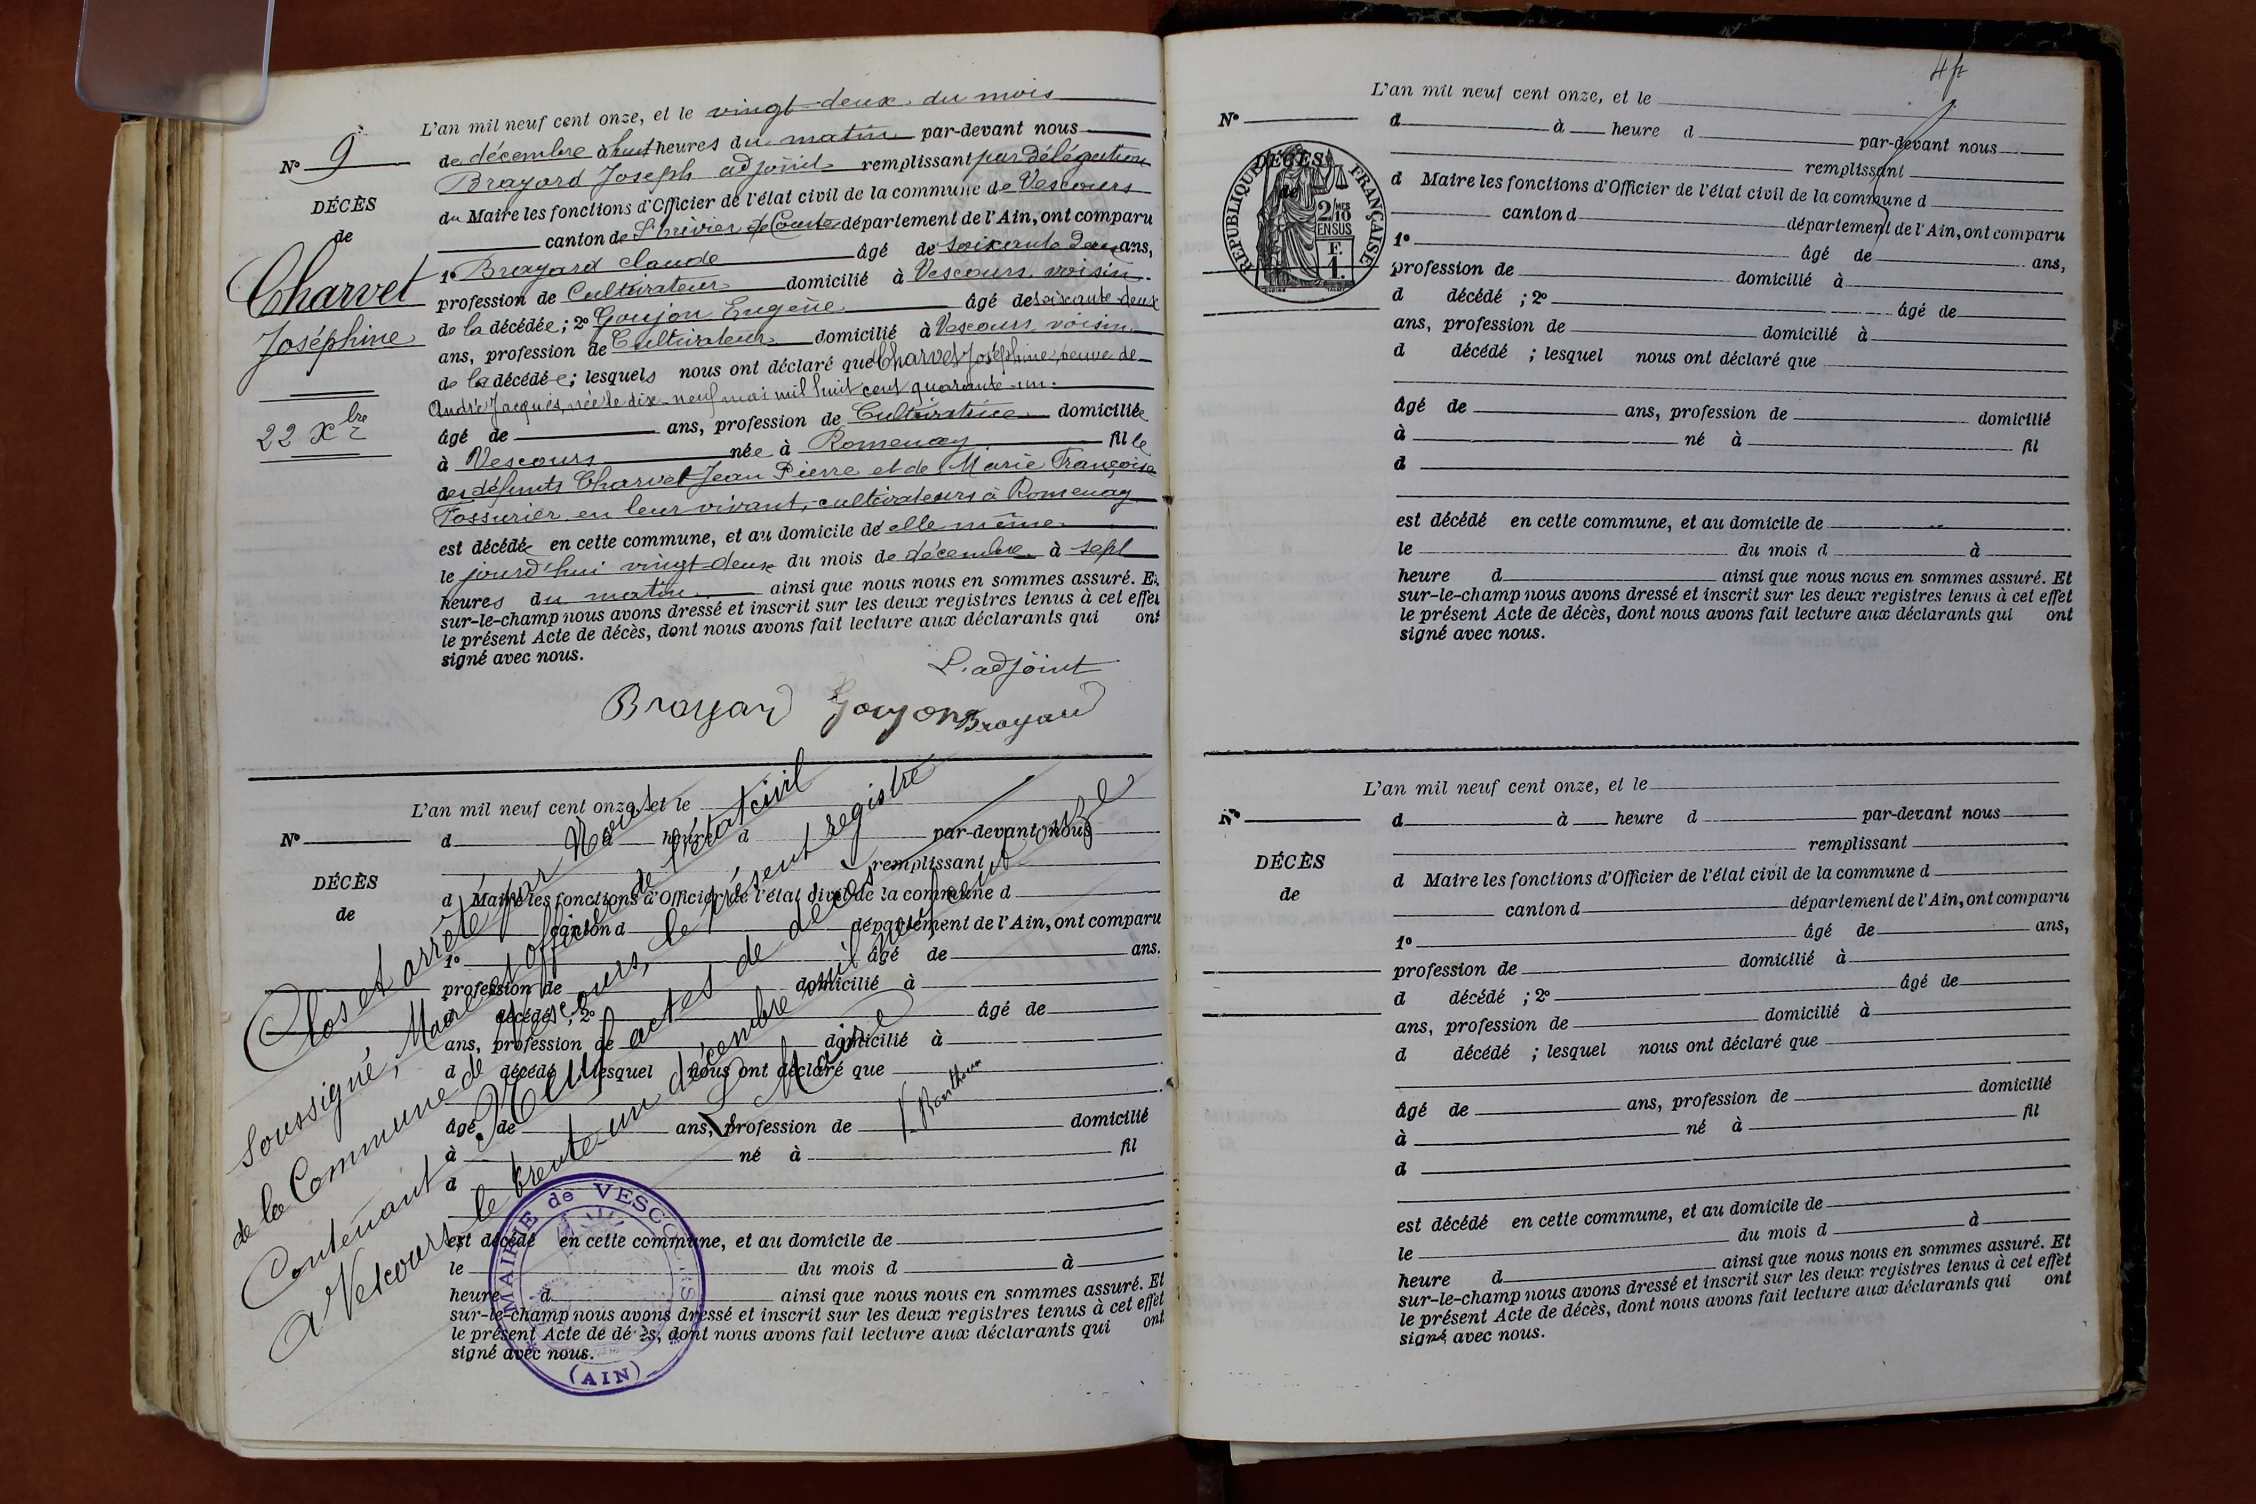 L'an mil neuf cent onze, et le vingt-deux du mois
de décembre à huit heures du matin par-devant nous
Nº 9
Brayard Joseph adjoint remplissant par délégation
DÉCÈS
de
du Maire les fonctions d'Officier de l'état civil de la commune de Vescours
canton de St Trivier de Courtes département de l'Ain, ont comparu
Charvet
Joséphine
22 Xbre
1º Brayard Claude âgé de soixante deux ans,
profession de Cultivateur domicilié à Vescours voisin
de la décédée ; 2º Goujon Eugène âgé de soixante-deux
ans, profession de Cultivateur domicilié à Vescours voisin
de la décédée ; lesquels nous ont déclaré que Charvet Joséphine, veuve de
André Jacques, née le dix-neuf mai mil huit cent quarante-un.
âgé de ans, profession de Cultivatrice domiciliée
à Vescours née à Romenay fille
des défunts Charvet Jean Pierre et de Marie Françoise
Fossurier en leur vivant, cultivateurs à Romenay
est décédée en cette commune, et au domicile de elle même
le jourd'hui vingt-deux du mois de décembre à sept
heures du matin ainsi que nous nous en sommes assuré. Et
sur-le-champ nous avons dressé et inscrit sur les deux registres tenus à cet effet
le présent Acte de décès, dont nous avons fait lecture aux déclarants qui ont
signé avec nous.
L'adjoint
Brayard Goujon Brayard
L'an mil neuf cent onze, et le
Nº
d à heure d par-devant nous
remplissant
DÉCÈS
de
d Maire les fonctions d'Officier de l'état civil de la commune d
canton d département de l'Ain, ont comparu
1º âgé de ans.
profession de domicilié à
d décédé ; 2º âgé de
ans, profession de domicilié à
d décédé ; lesquel nous ont déclaré que
âgé de ans, profession de domicilié
à né à fil
d
est décédé en cette commune, et au domicile de
le du mois d à
heure d ainsi que nous nous en sommes assuré. Et
sur-le-champ nous avons dressé et inscrit sur les deux registres tenus à cet effet
le présent Acte de décès, dont nous avons fait lecture aux déclarants qui ont
signé avec nous.
Clos et arrêté par Nous
soussigné, Maire et officier de l'état civil
de la Commune de Vescours, le présent registre
Contenant Neuf actes de décès
A Vescours, le trente-un décembre mil neuf cent onze
Le Maire
MAIRIE de VESCOURS
(AIN)
L'an mil neuf cent onze, et le
Nº
d à heure d par-devant nous
remplissant
DÉCÈS
de
RÉPUBLIQUE FRANÇAISE
2/10 MES
EN SUS
F.
1.
d Maire les fonctions d'Officier de l'état civil de la commune d
canton d département de l'Ain, ont comparu
1º âgé de ans,
profession de domicilié à
d décédé ; 2º âgé de
ans, profession de domicilié à
d décédé ; lesquel nous ont déclaré que
âgé de ans, profession de domicilié
à né à fil
d
est décédé en cette commune, et au domicile de
le du mois d à
heure d ainsi que nous nous en sommes assuré. Et
sur-le-champ nous avons dressé et inscrit sur les deux registres tenus à cet effet
le présent Acte de décès, dont nous avons fait lecture aux déclarants qui ont
signé avec nous.
L'an mil neuf cent onze, et le
Nº
d à heure d par-devant nous
remplissant
DÉCÈS
de
d Maire les fonctions d'Officier de l'état civil de la commune d
canton d département de l'Ain, ont comparu
1º âgé de ans,
profession de domicilié à
d décédé ; 2º âgé de
ans, profession de domicilié à
d décédé ; lesquel nous ont déclaré que
âgé de ans, profession de domicilié
à né à fil
d
est décédé en cette commune, et au domicile de
le du mois d à
heure d ainsi que nous nous en sommes assuré. Et
sur-le-champ nous avons dressé et inscrit sur les deux registres tenus à cet effet
le présent Acte de décès, dont nous avons fait lecture aux déclarants qui ont
signé avec nous.